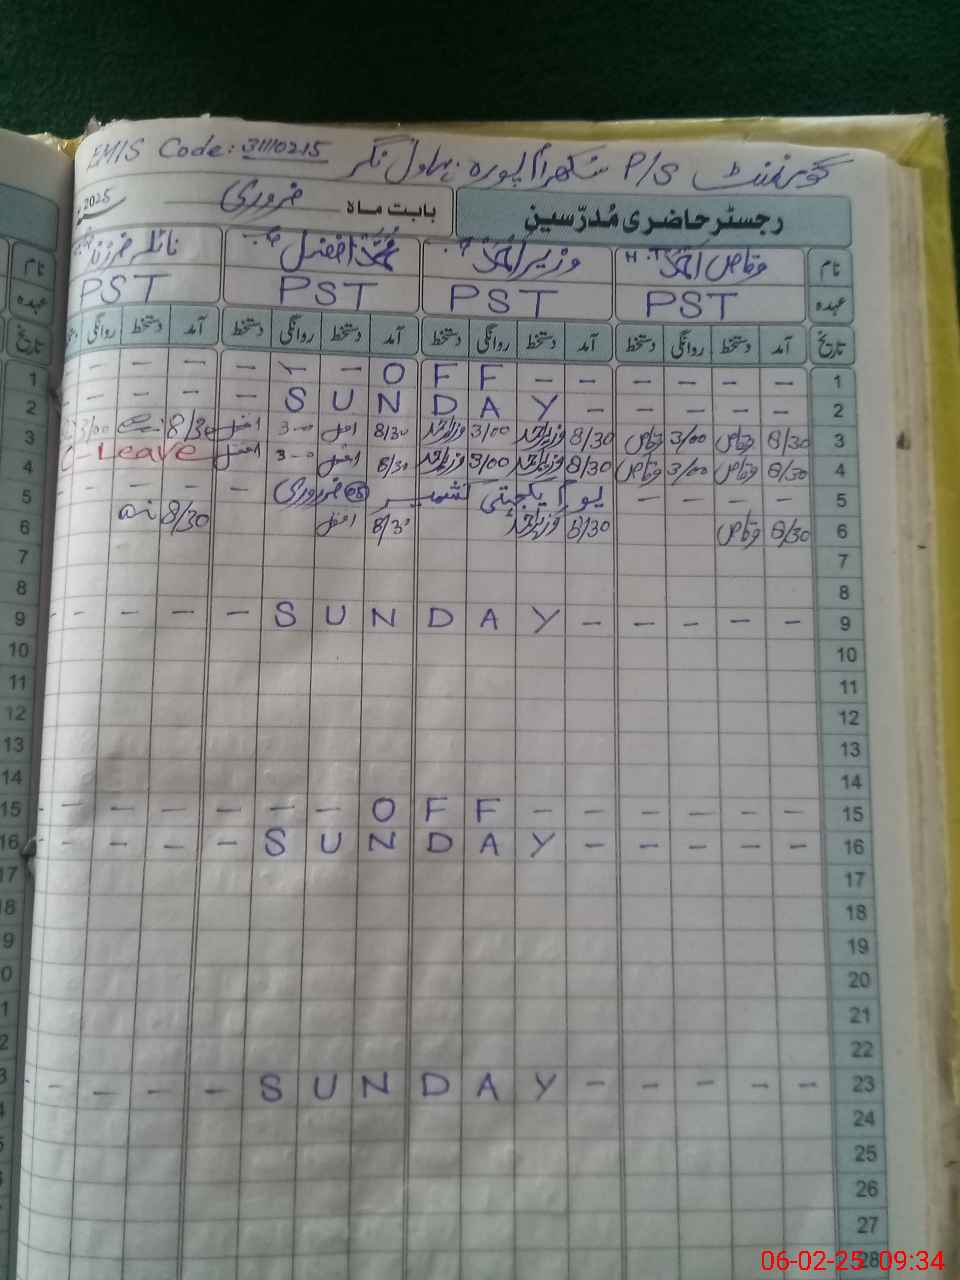 EMIS Code: 31110215 گورنمنٹ P/S سنگھرام پورہ بہاول نگر
رجسٹر حاضری مُدرّسین بابت ماہ فروری 2025
نام وقاص احمد H.T وزیر احمد محمد افضل نائلہ فرزانہ نام
عہدہ PST PST PST PST عہدہ
تاریخ آمد دستخط روانگی دستخط آمد دستخط روانگی دستخط آمد دستخط روانگی دستخط آمد دستخط روانگی تاریخ
1 - - - - - O F F - - - - - - 1
2 - - - - - S U N D A Y - - - - 2
3 8/30 وقاص 3/00 وقاص 8/30 وزیراحمد 3/00 وزیراحمد 8/30 افضل 3-00 افضل 8/30 3/00 3
4 8/30 وقاص 3/00 وقاص 8/30 وزیراحمد 3/00 وزیراحمد 8/30 افضل 3-00 افضل C-Leave 4
5 - - - - یوم یکجہتی کشمیر 05 فروری - - - - 5
6 8/30 وقاص 8/30 وزیراحمد 8/30 افضل 8/30 6
7 7
8 8
9 - - - - - S U N D A Y - - - - 9
10 10
11 11
12 12
13 13
14 14
15 - - - - - O F F - - - - - - 15
16 - - - - - S U N D A Y - - - - 16
17 17
18 18
19 9
20 0
21 1
22 2
23 - - - - - S U N D A Y - - - - 3
24 4
25 5
26
27
28
06-02-25 09:34